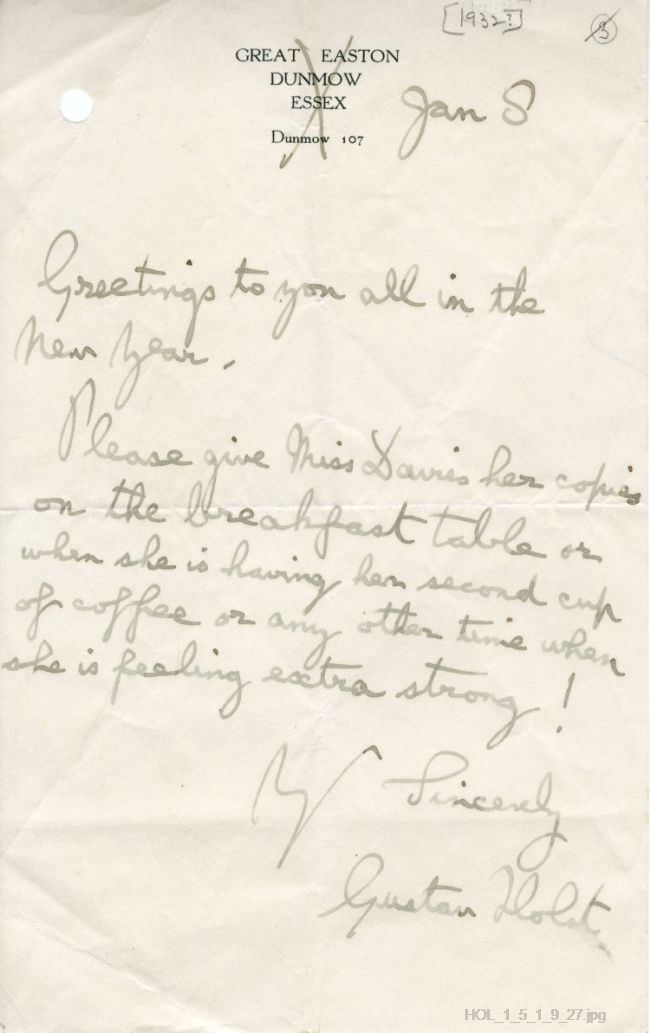 [1932?] 3
GREAT EASTON
DUNMOW
ESSEX
Dunmow 107
Jan 8
Greetings to you all in the
New Year.
Please give Miss Davies her copies
on the breakfast table or
when she is having her second cup
of coffee or any other time when
she is feeling extra strong!
Yrs Sincerely
Gustav Holst
HOL_1_5_1_9_27.jpg